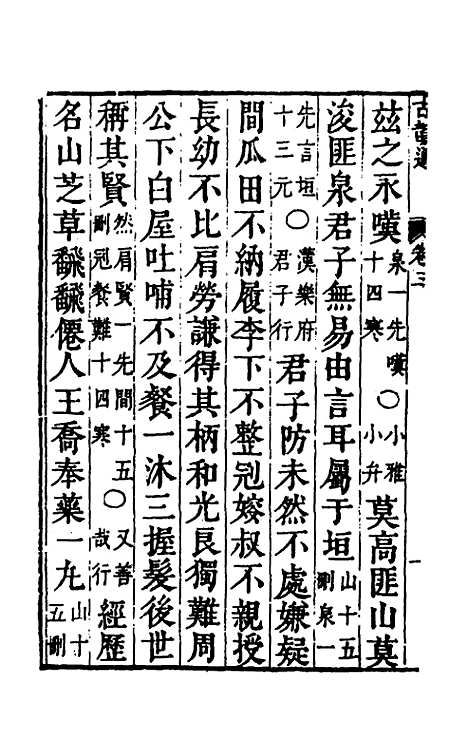 古韻通 卷三
茲之永嘆泉一先嘆十四寒〇小雅小弁莫高匪山莫
浚匪泉君子無易由言耳屬于垣山十五刪泉一
先言垣十三元〇漢樂府君子行君子防未然不處嫌疑
間瓜田不納履李下不整冠嫂叔不親授
長幼不比肩勞謙得其柄和光良獨難周
公下白屋吐哺不及餐一沐三握髮後世
稱其賢然肩賢一先間十五刪冠餐難十四寒〇又善哉行經歷
名山芝草飜飜僊人王喬奉藥一丸山十五刪